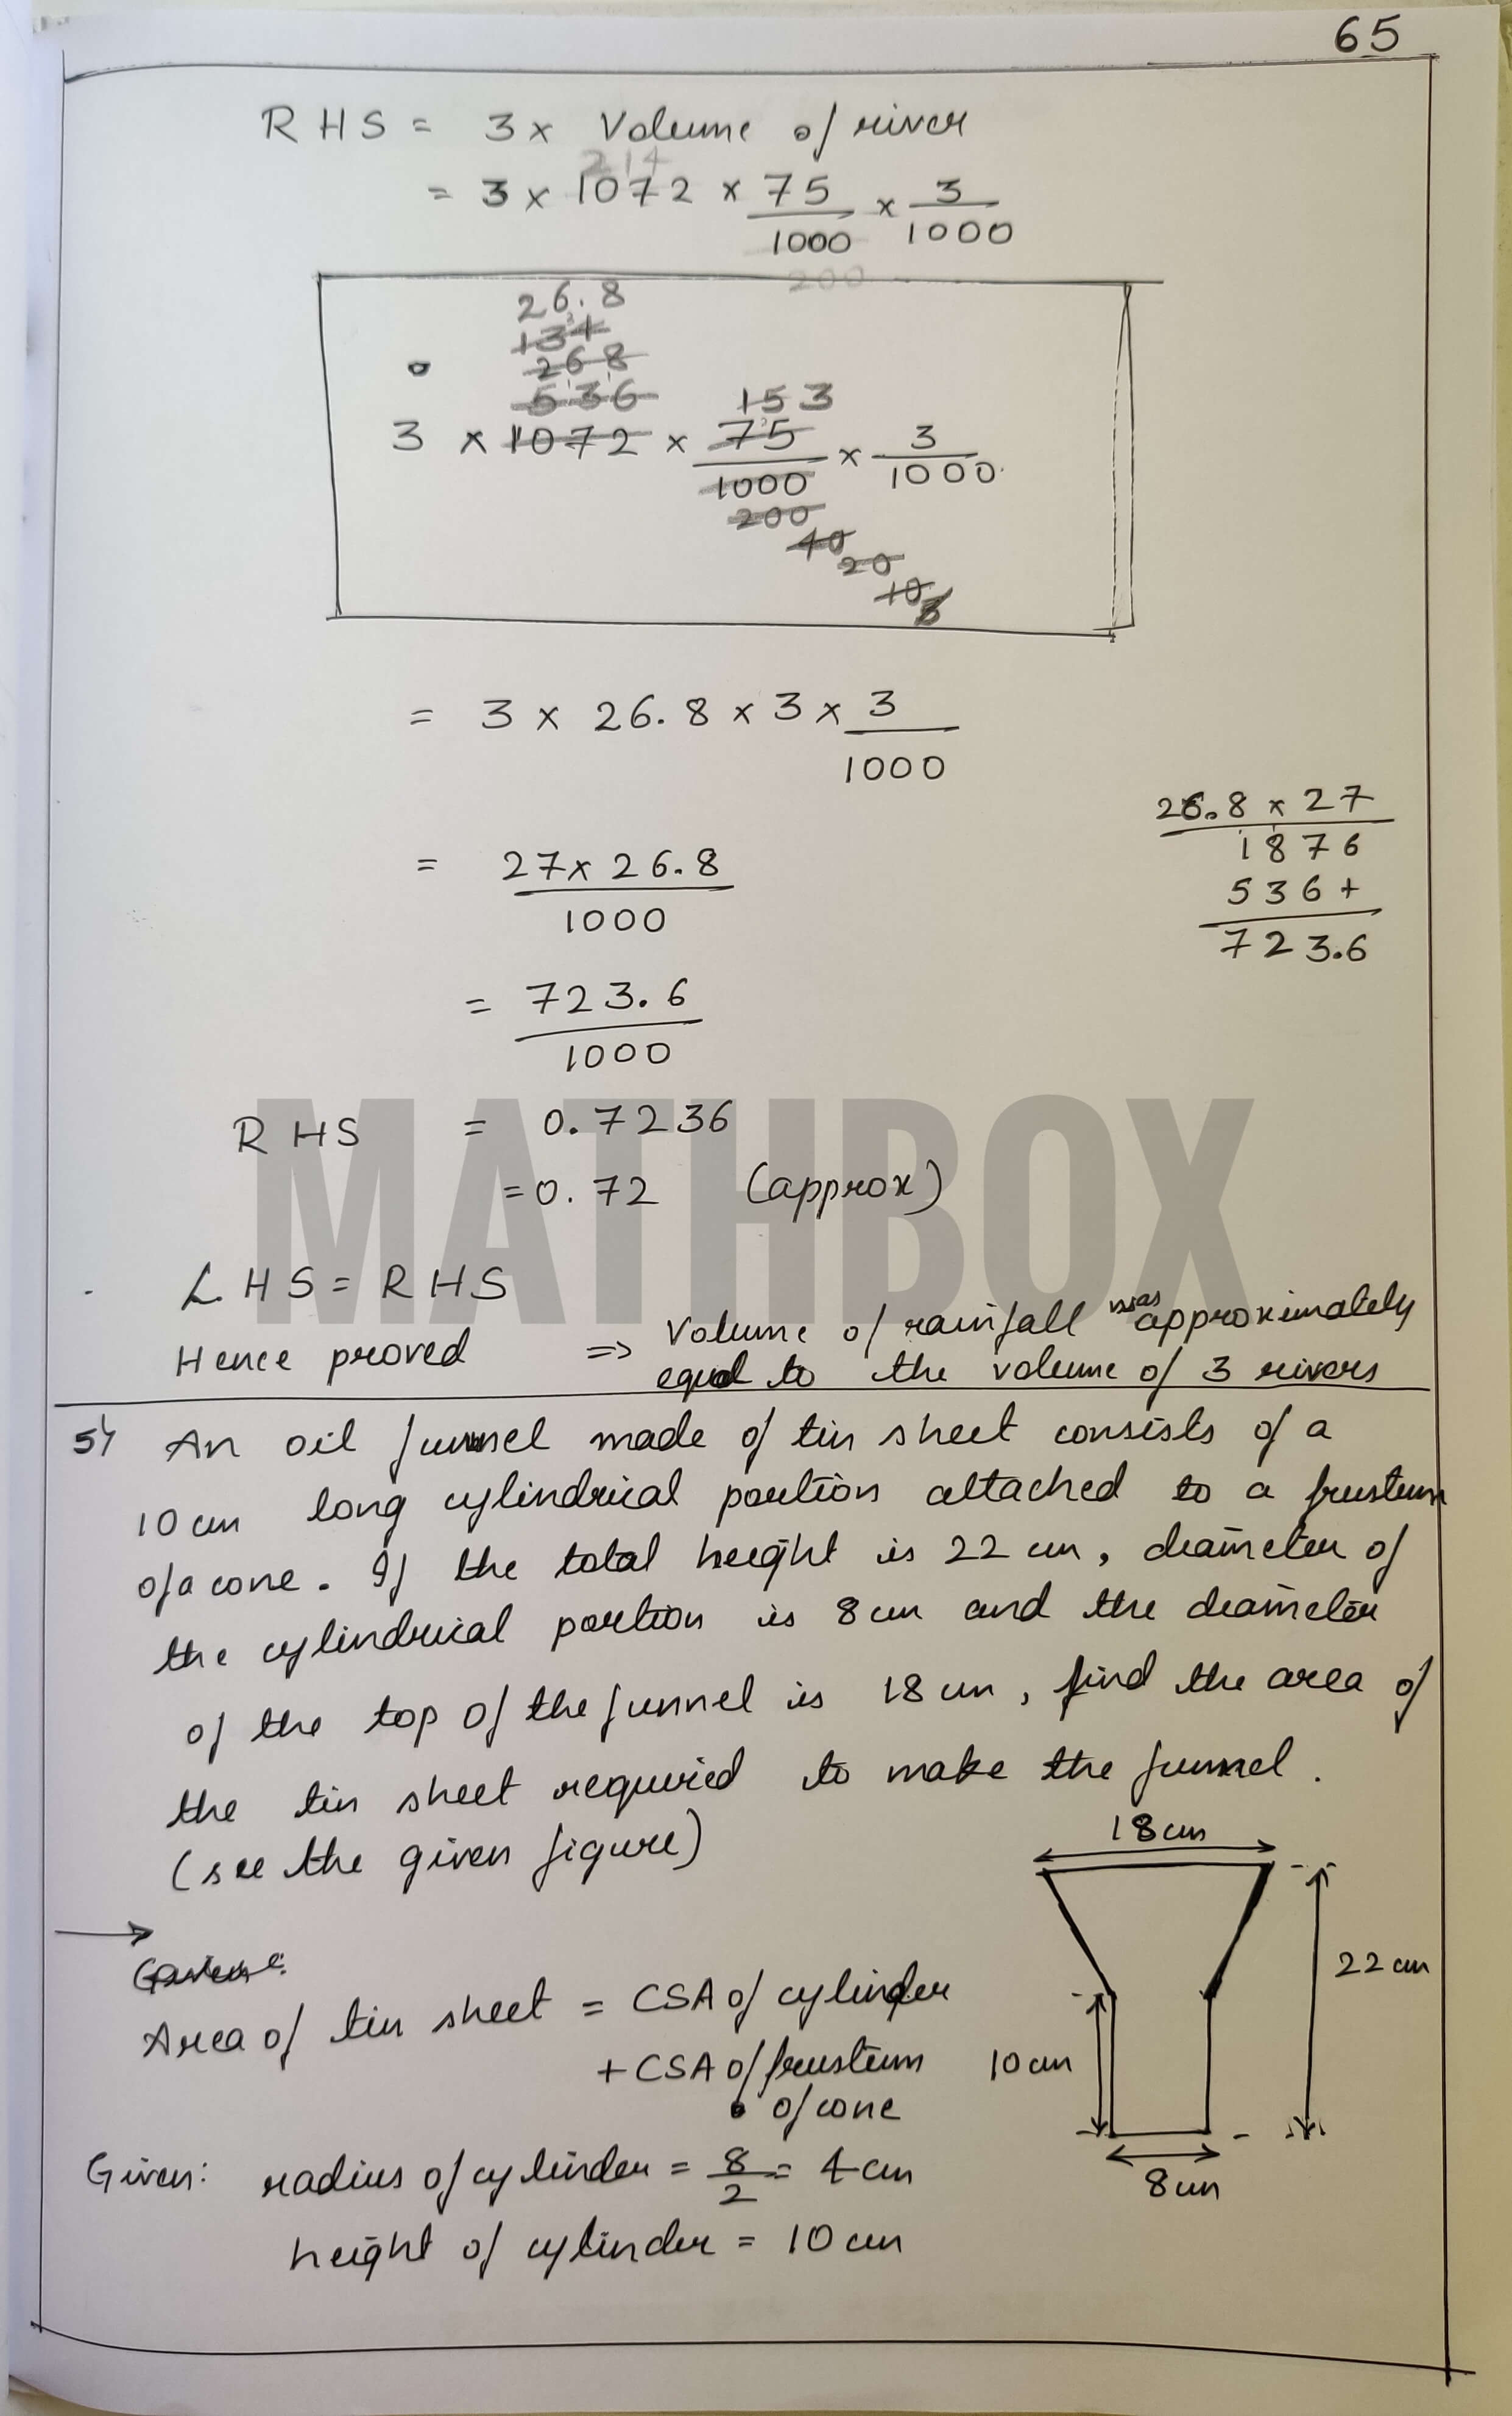 65
RHS = 3 x Volume of river
214
= 3 x 1072 x 75/1000 x 3/1000
200
26.8
134
268
536
153
3 x 1072 x 75/1000 x 3/1000
200
40
20
10
5
= 3 x 26.8 x 3 x 3/1000
26.8 x 27
1876
536+
723.6
= 27 x 26.8/1000
= 723.6/1000
RHS = 0.7236
= 0.72 (approx)
MATHBOX
LHS = RHS
Hence proved => Volume of rainfall was approximately
equal to the volume of 3 rivers
5) An oil funnel made of tin sheet consists of a
10 cm long cylindrical portion attached to a frustum
of a cone. If the total height is 22 cm, diameter of
the cylindrical portion is 8 cm and the diameter
of the top of the funnel is 18 cm, find the area of
the tin sheet required to make the funnel.
(see the given figure)
18 cm
22 cm
10 cm
8 cm
Area of tin sheet = CSA of cylinder
+ CSA of frustum
of cone
Given: radius of cylinder = 8/2 = 4 cm
height of cylinder = 10 cm